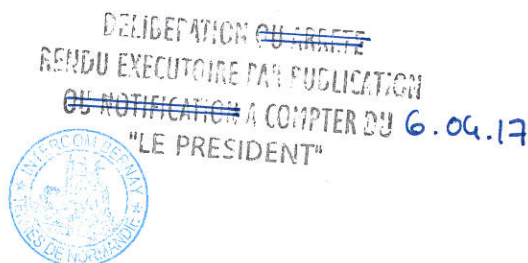 DELIBERATION OU ARRETE
RENDU EXECUTOIRE PAR PUBLICATION
OU NOTIFICATION A COMPTER DU 6.04.17
"LE PRESIDENT"
INTERCOM BERNAY
TERRES DE NORMANDIE